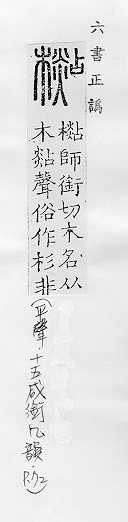 六書正譌
師銜切木名从
木煔聲俗作杉非
(平聲·十五咸銜凡韻·P.72)